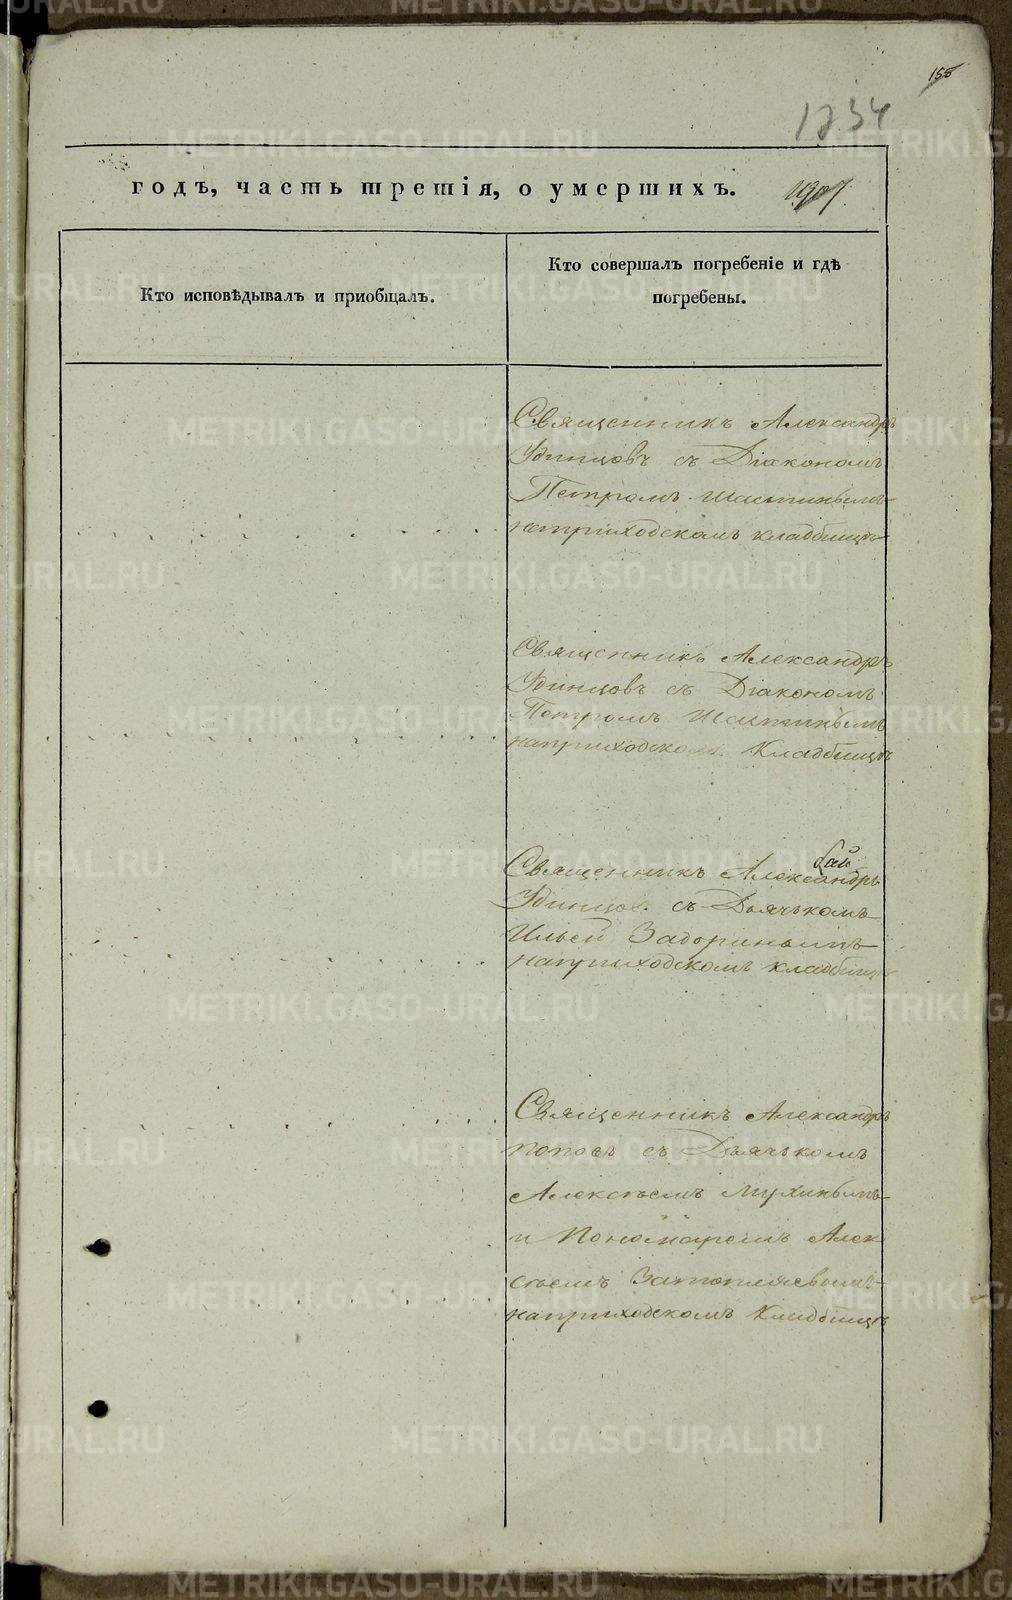 155
1734
годъ, часть третія, о умершихъ.
1907.
Кто исповѣдывалъ и приобщалъ.
Кто совершалъ погребеніе и гдѣ
погребены.
Священникъ Александръ
Удинцовъ съ Діакономъ
Петромъ Шастинымъ
на приходскомъ кладбищѣ
Священникъ Александръ
Удинцовъ съ Діакономъ
Петромъ Шастинымъ
на приходскомъ Кладбищѣ
Священникъ Александръ
Удинцовъ съ Дьячькомъ
Ильей Задоринымъ
на приходскомъ кладбищѣ
Священникъ Александръ
Поповъ съ Дьячькомъ
Алексѣемъ Мухинымъ
и Пономаремъ Алек
сѣемъ Затопляевымъ
на приходскомъ Кладбищѣ
METRIKI.GASO-URAL.RU